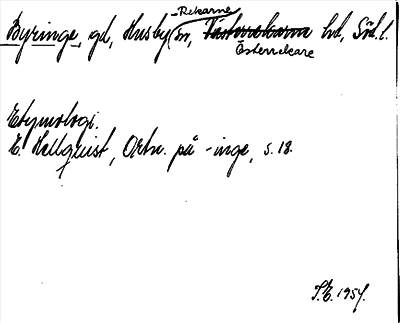 Byringe, gd, Husby-Rekarne sn, Västerrekarne hd, Söd.l.
Österrekarne
Etymologi.
E. Hellquist, Ortn. på -inge, s. 18.
S.E. 1954.